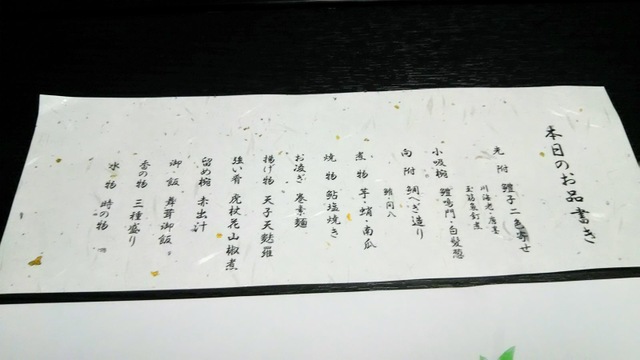 本日のお品書き
先附 鱧子二色寄せ
川海老・唐墨
玉筋魚釘煮
小吸椀 鱧鳴門・白髪葱
向附 鯛へぎ造り
鮹・間八
煮物 芋・蛸・南瓜
焼物 鮎塩焼き
お凌ぎ 巻素麺
揚げ物 天子天麩羅
強い肴 虎杖花山椒煮
留め椀 赤出汁
御飯 舞茸御飯
香の物 三種盛り
水物 時の物